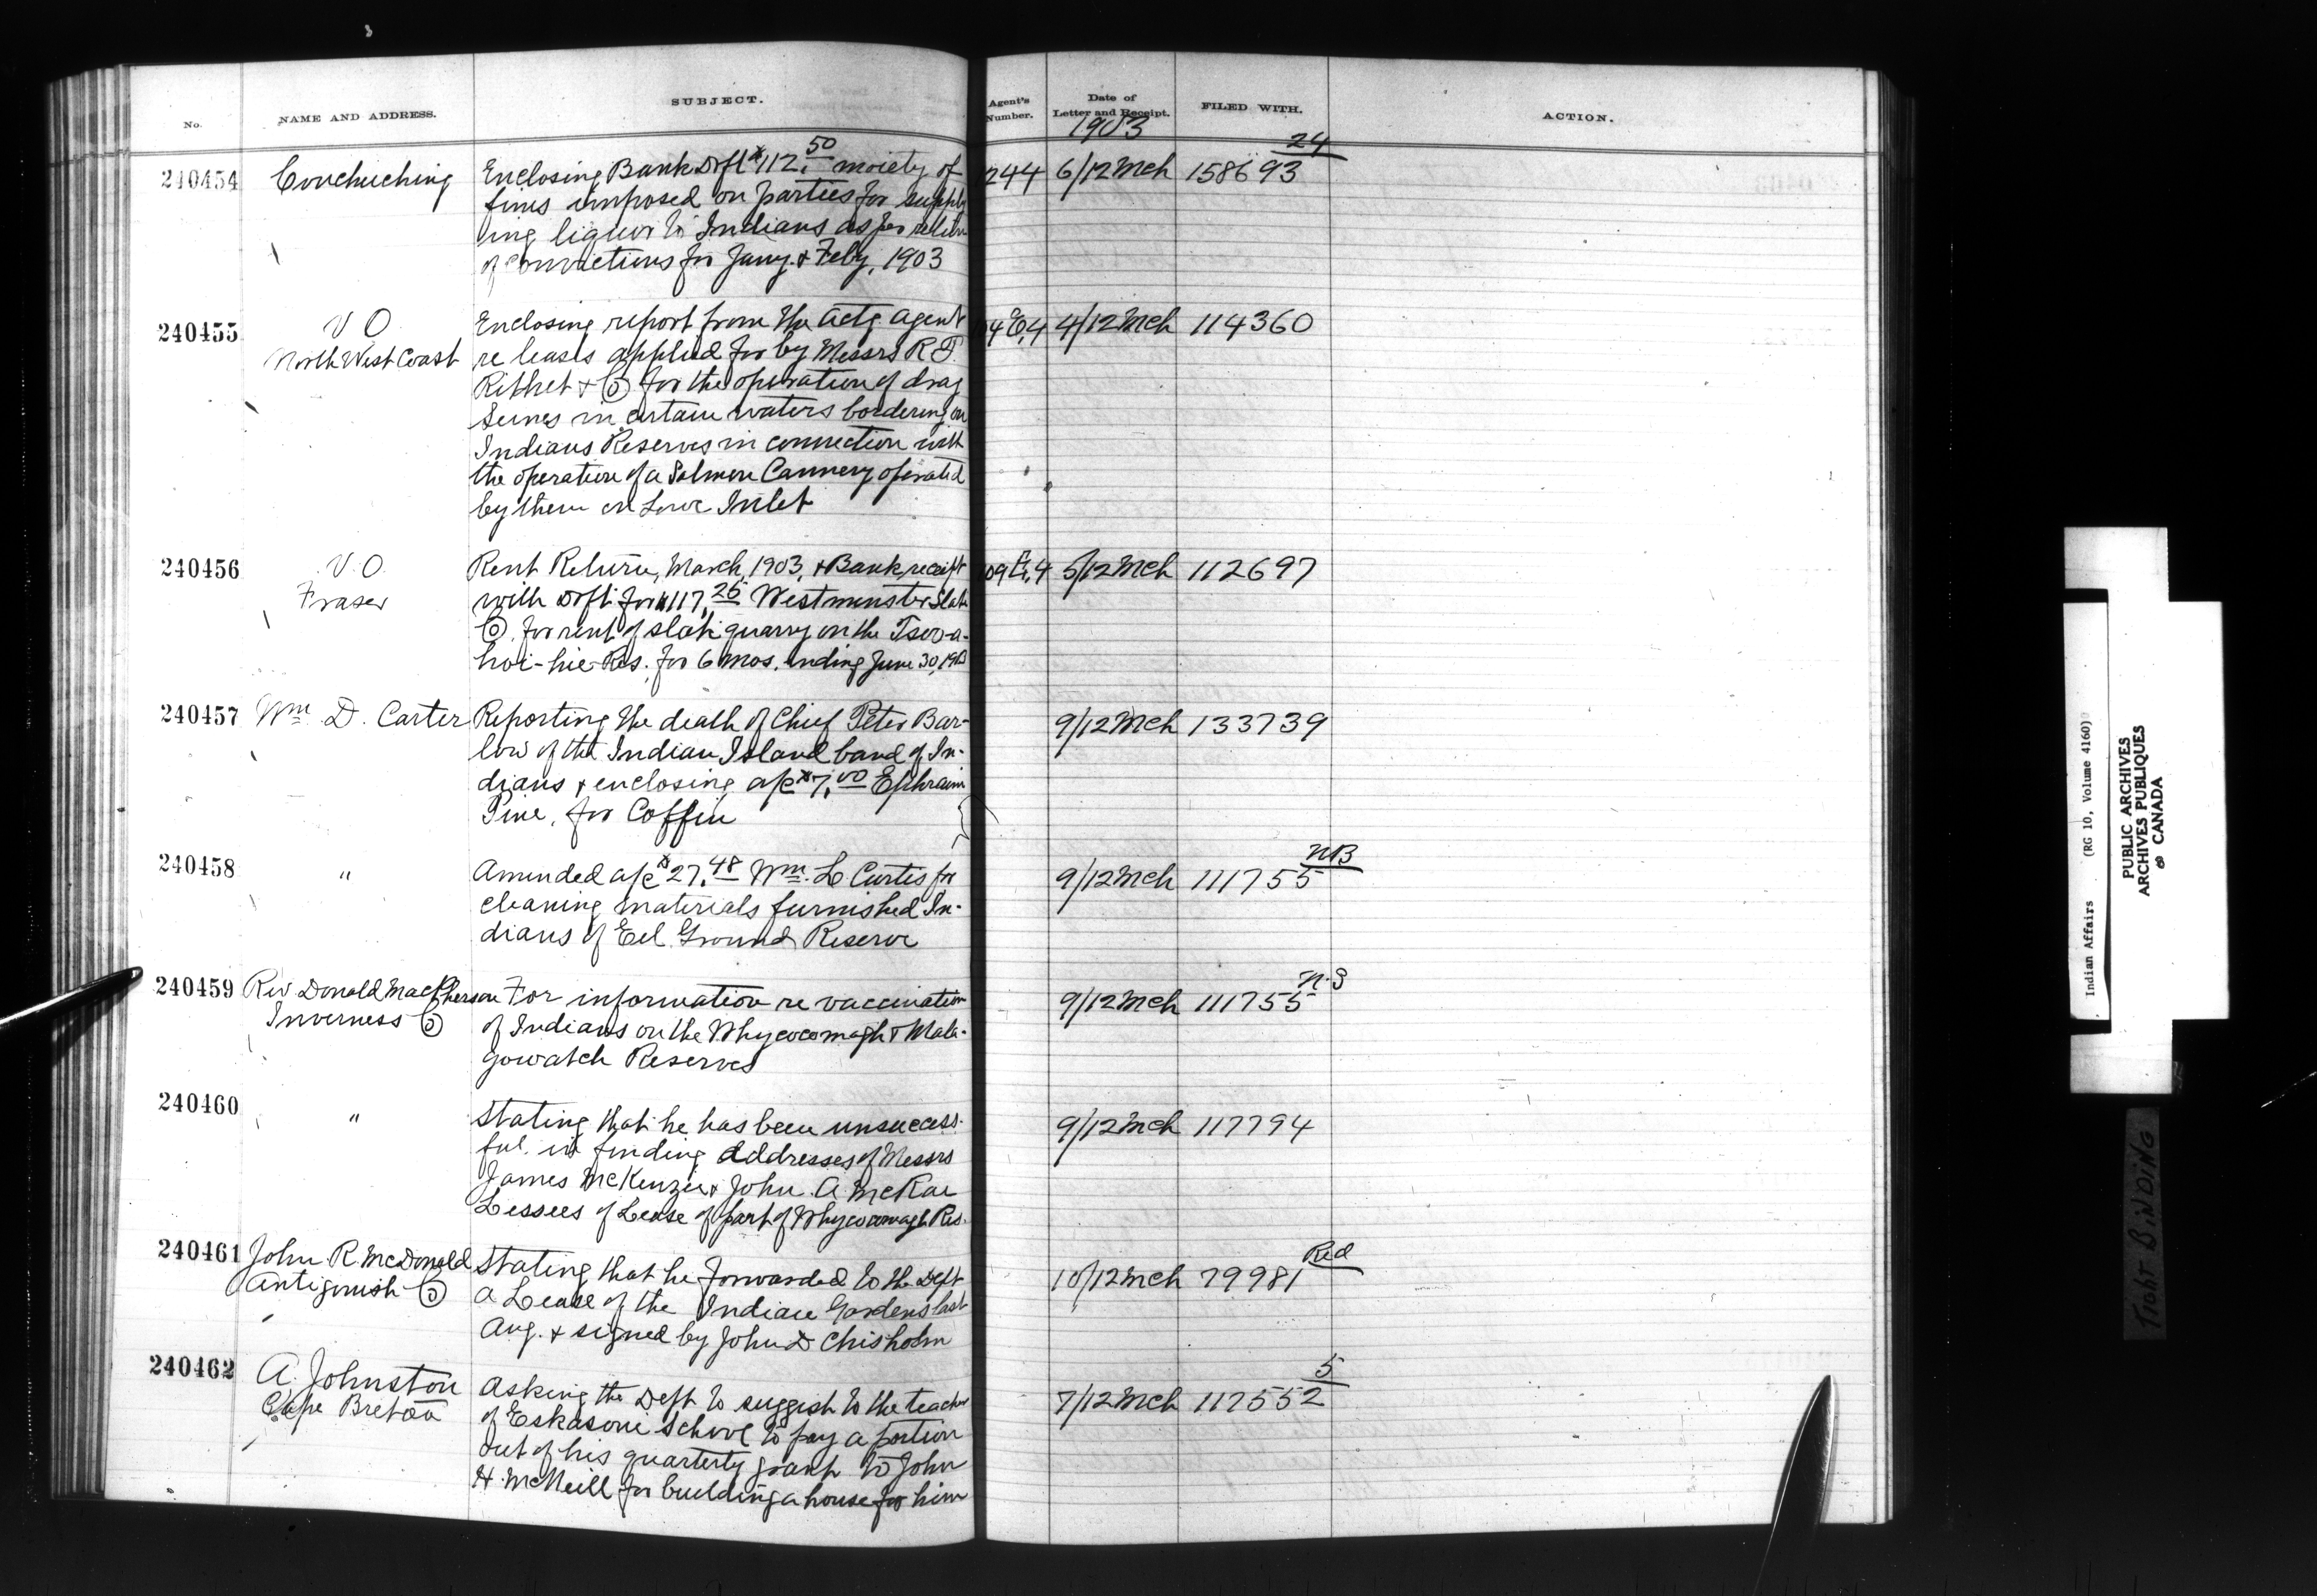 No. NAME AND ADDRESS. SUBJECT. Agent's Number. Date of Letter and Receipt. FILED WITH. ACTION.
1903
240454 Couchuching Enclosing Bank Dft $112.50 moiety of 244 6/12 Mch 158693 24
fines imposed on parties for supply
ing liquor to Indians as per return
of convictions for Jany. & Feby, 1903
240455 V O Enclosing report from the actg agent 4/12 Mch 114360
North West Coast re leases applied for by Messrs R. P.
Rithet & Co for the operation of drag
Seines in certain waters bordering on
Indians Reserves in connection with
the operation of a Salmon Cannery operated
by them on Lowe Inlet
240456 V. O. Rent Return, March, 1903, & Bank receipt 5/12 Mch 112697
Fraser with Dft. for $117.25 Westminster Slate
Co. for rent of slate quarry on the Tseo-a-
hoi-hie Res. for 6 mos. ending June 30, 1903
240457 Wm D. Carter Reporting the death of Chief Peter Bar- 9/12 Mch 133739
low of the Indian Island band of In-
dians & enclosing a/c $7.00 Ephraim
Pine, for Coffin
240458 " Amended a/c $27.48 Wm. L. Curtis for 9/12 Mch 111755 NB
cleaning materials furnished In-
dians of Eel Ground Reserve
240459 Rev Donald MacPherson For information re vaccination 9/12 Mch 111755 N.S
Inverness Co of Indians on the Whycocomagh & Mala-
gowatch Reserves
240460 " Stating that he has been unsuccess- 9/12 Mch 117794
ful in finding addresses of Messrs
James McKenzie & John A McRae
Lessees of Lease of part of Whycocomagh Res.
240461 John R. McDonald Stating that he forwarded to the Dept 10/12 Mch 79981 Red
Antigonish Co a Lease of the Indian Gardens last
Aug. & signed by John D Chisholm
240462 A. Johnston Asking the Dept to suggest to the teacher 7/12 Mch 117552 5
Cape Breton of Eskasoni School to pay a portion
out of his quarterly grant to John
H. McNeill for building a house for him
Indian Affairs (RG 10, Volume 4160)
PUBLIC ARCHIVES
ARCHIVES PUBLIQUES
CANADA
TIGHT BINDING